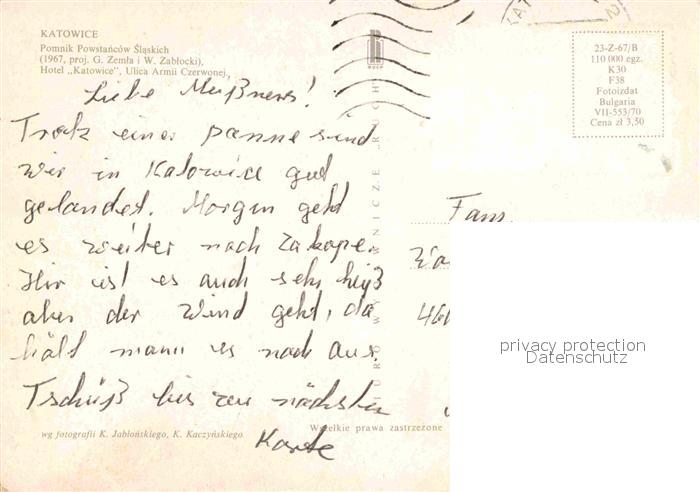 KATOWICE
Pomnik Powstańców Śląskich
(1967, proj. G. Zemła i W. Zabłocki).
Hotel „Katowice”, Ulica Armii Czerwonej.
Liebe Meißners!
Trotz einer panne sind
wir in Katowice gut
gelandet. Morgen geht
es weiter nach Zakopa.
Hir ist es auch sehr heiß
aber der Wind geht, da
hält mann es noch aus.
Tschüß bis zur nächsten
Karte
wg fotografii K. Jabłońskiego, K. Kaczyńskiego
RUCH
Wszelkie prawa zastrzeżone
23-Z-67/B
110 000 egz.
K30
F38
Fotoizdat
Bulgaria
VII-553/70
Cena zł 3,50
Fam.
privacy protection
Datenschutz